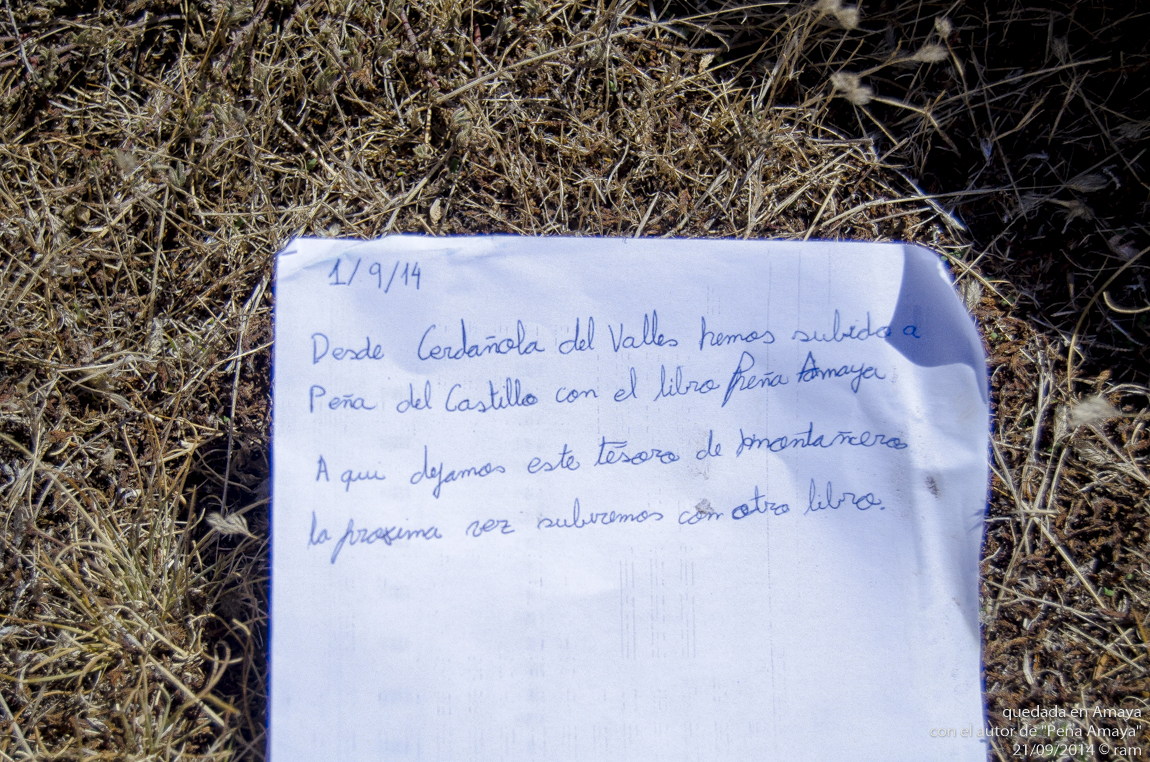 1/9/14
Desde Cerdañola del Valles hemos subido a
Peña del Castillo con el libro Peña Amaya
A qui dejamos este tesoro de montañero
la proxima vez subiremos con otro libro.
quedada en Amaya
con el autor de "Peña Amaya"
21/09/2014 © ram